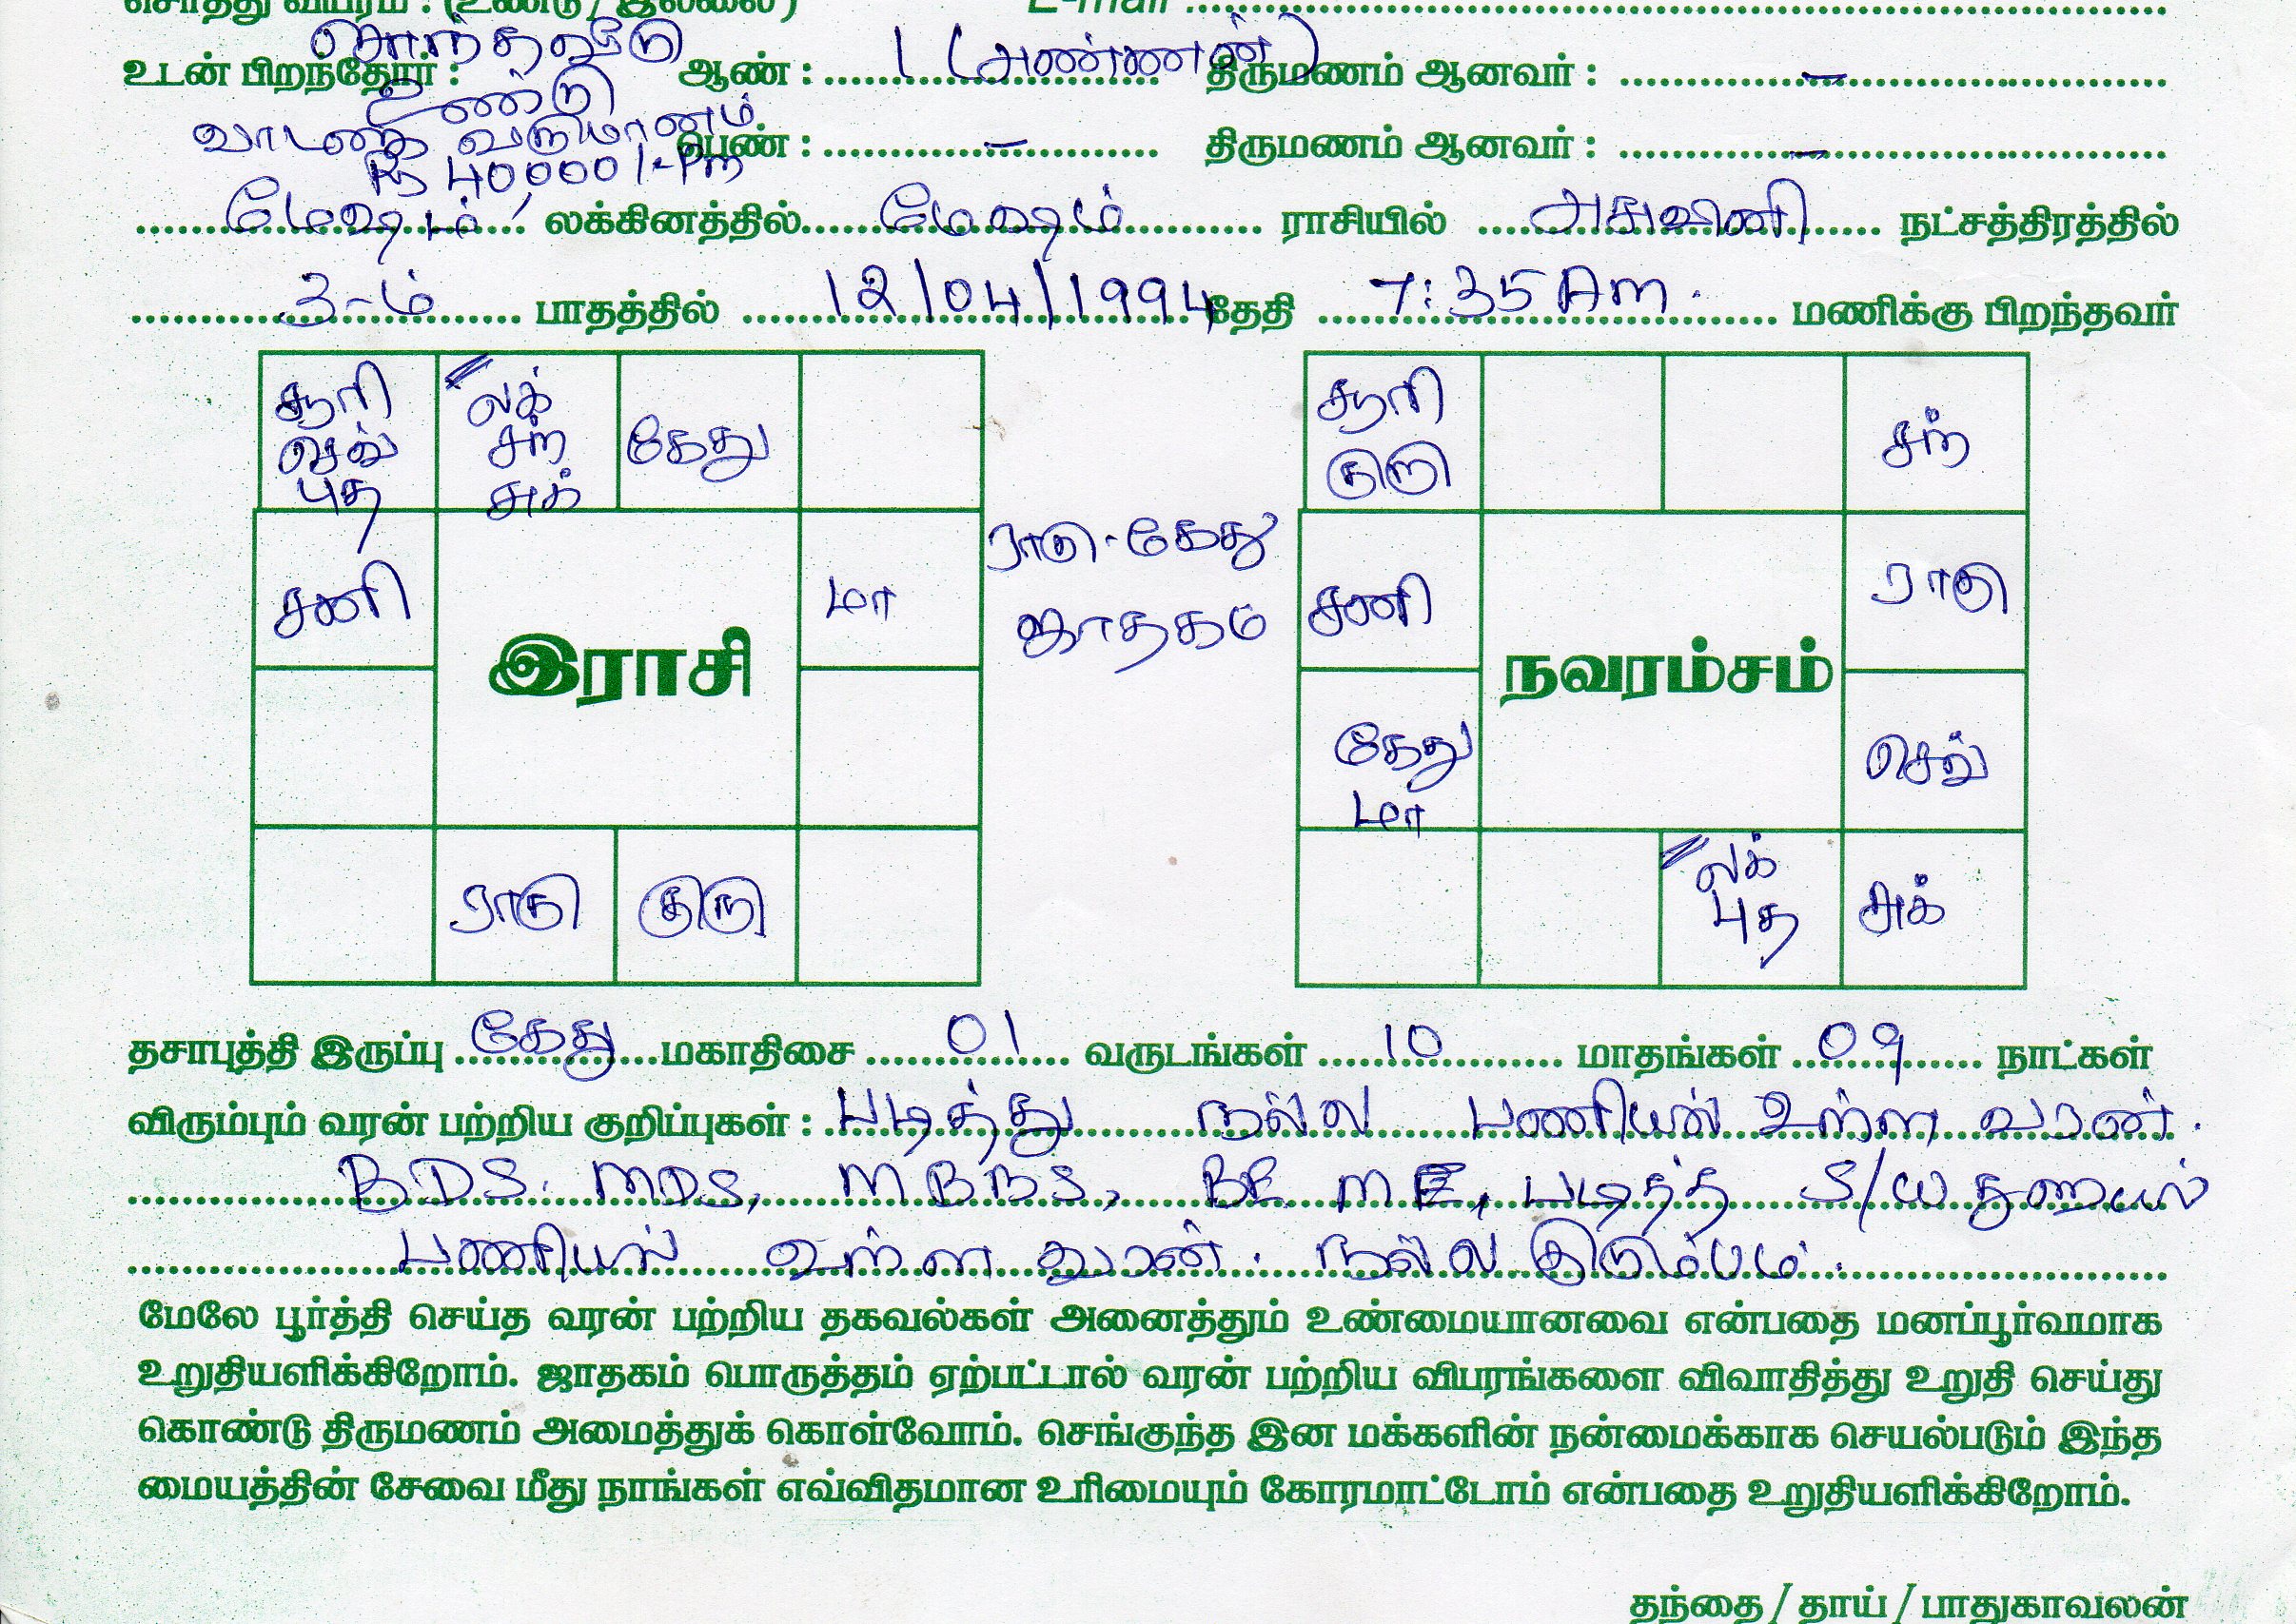 சொத்து விபரம் : (உண்டு / இல்லை) E-mail :
சொந்தவீடு
உடன் பிறந்தோர் : ஆண் : 1 (அண்ணன்) திருமணம் ஆனவர் : –
உண்டு
வாடகை வருமானம்
பெண் : – திருமணம் ஆனவர் : –
Rs 40000/-Pm
மேஷம் லக்கினத்தில் மேஷம் ராசியில் அசுவினி நட்சத்திரத்தில்
3-ம் பாதத்தில் 12/04/1994 தேதி 7:35 Am. மணிக்கு பிறந்தவர்
சூரி லக் கேது
செவ் சந்
புத சுக்
சனி மா
இராசி
ராகு குரு
ராகு-கேது
ஜாதகம்
சூரி சந்
குரு
சனி ராகு
நவரம்சம்
கேது செவ்
மா
லக் சுக்
புத
தசாபுத்தி இருப்பு கேது மகாதிசை 01 வருடங்கள் 10 மாதங்கள் 09 நாட்கள்
விரும்பும் வரன் பற்றிய குறிப்புகள் : படித்து நல்ல பணியில் உள்ள வரன்.
BDS. MDS, MBBS, BE ME, படித்த S/W துறையில்
பணியில் உள்ள வரன். நல்ல குடும்பம்.
மேலே பூர்த்தி செய்த வரன் பற்றிய தகவல்கள் அனைத்தும் உண்மையானவை என்பதை மனப்பூர்வமாக
உறுதியளிக்கிறோம். ஜாதகம் பொருத்தம் ஏற்பட்டால் வரன் பற்றிய விபரங்களை விவாதித்து உறுதி செய்து
கொண்டு திருமணம் அமைத்துக் கொள்வோம். செங்குந்த இன மக்களின் நன்மைக்காக செயல்படும் இந்த
மையத்தின் சேவை மீது நாங்கள் எவ்விதமான உரிமையும் கோரமாட்டோம் என்பதை உறுதியளிக்கிறோம்.
தந்தை / தாய் / பாதுகாவலன்